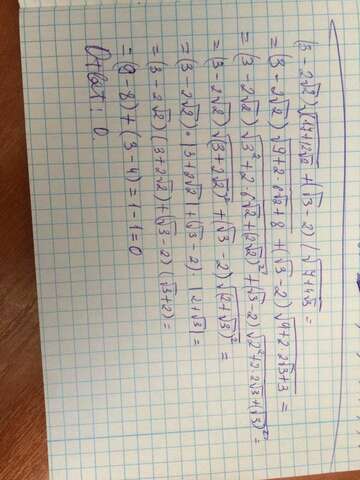 (3 - 2√2)√(17+12√2) + (√3 - 2)(√(7+4√3) =
= (3 - 2√2)√(9+2·6√2+8) + (√3 - 2)√(4+2·2√3+3) =
= (3 - 2√2)√(3²+2·6√2+(2√2)²) + (√3 - 2)√(2²+2·2√3+(√3)²) =
= (3 - 2√2)√(3+2√2)² + (√3 - 2)√(2+√3)² =
= (3 - 2√2)·|3+2√2| + (√3 - 2)|2+√3| =
= (3 - 2√2)(3+2√2)+(√3 - 2)(√3+2) =
= (9 - 8) + (3 - 4) = 1 - 1 = 0
Ответ: 0.